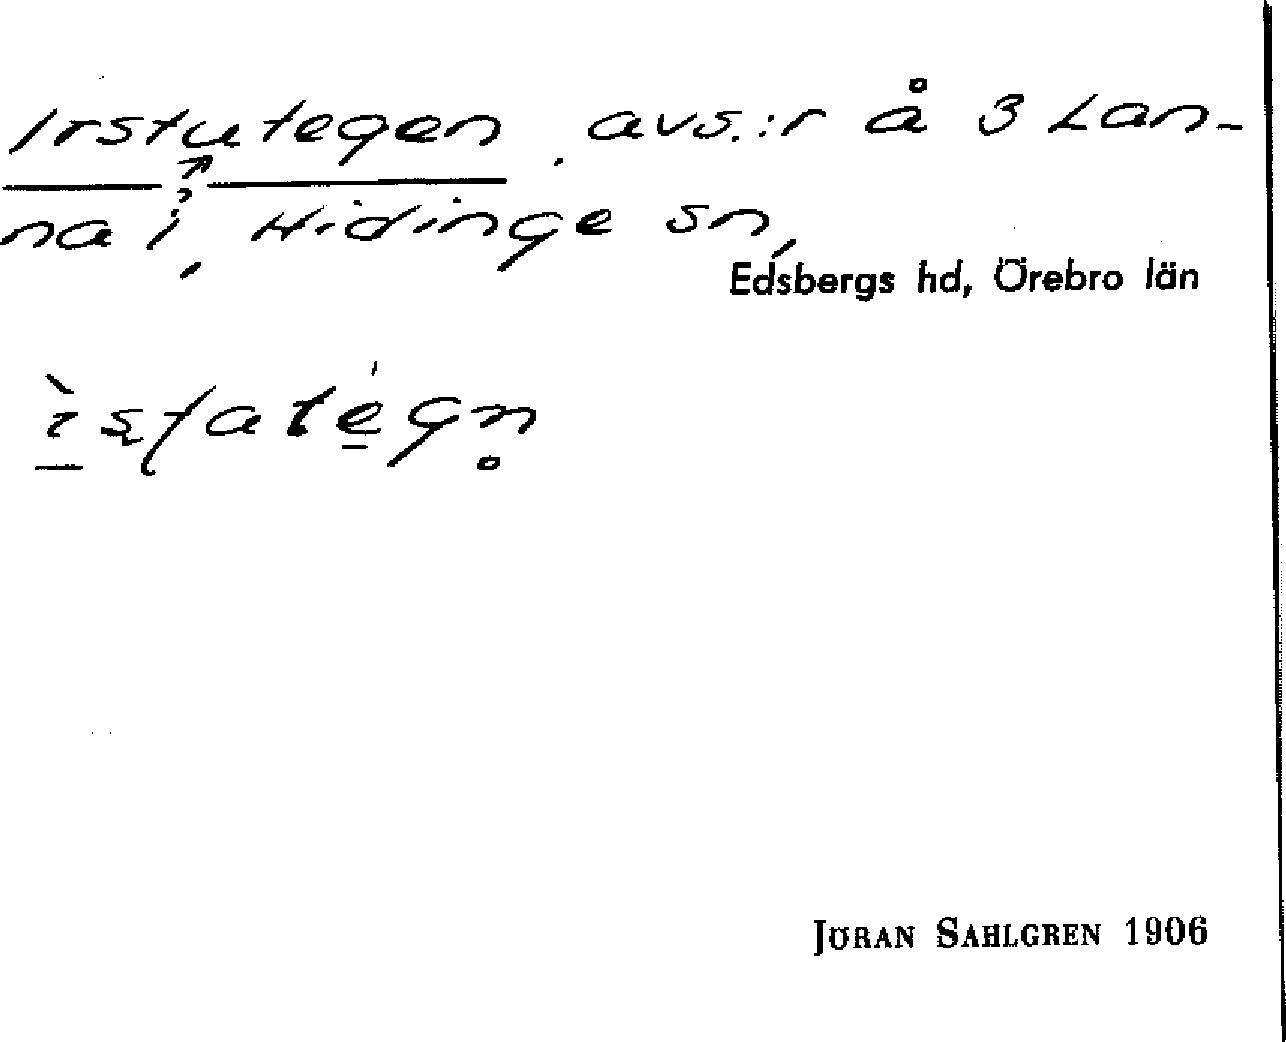 Irstutegen, avs.:r å 3 Lan-
na i, Hidinge sn,
Edsbergs hd, Örebro län
JÖRAN SAHLGREN 1906